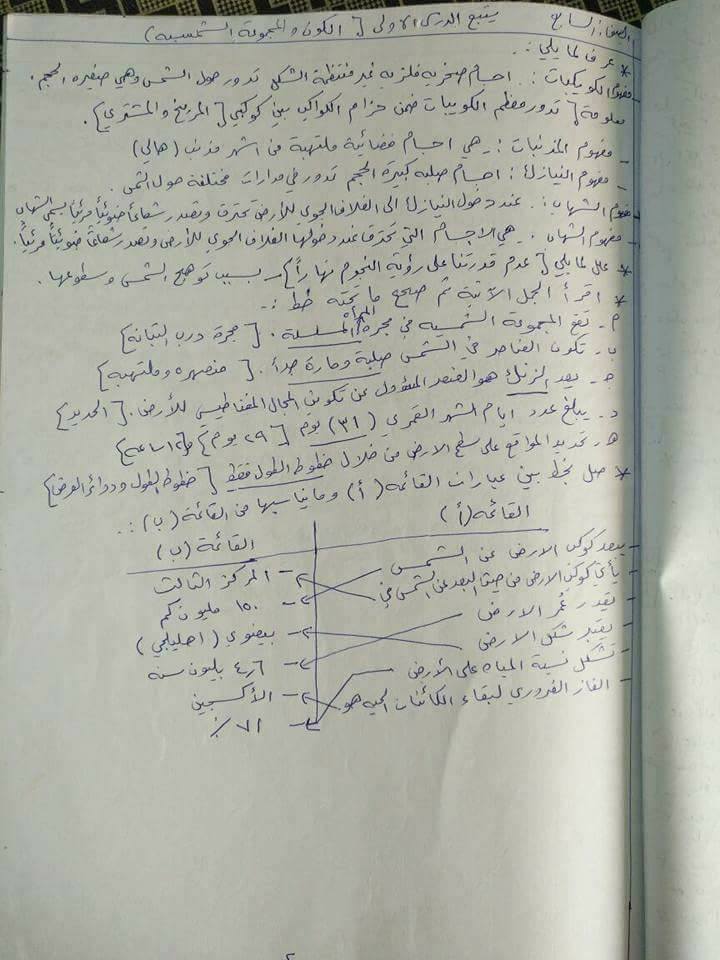 الصف: السابع يتبع الدرس الاولى [ الكون والمجموعة الشمسية )
* عرف لما يلي :
- مفهوم الكويكبات : اجسام صخريه فلزيه غير منتظمة الشكل تدور حول الشمس وهي صغيره الحجم .
معلومة [ تدور معظم الكويبات ضمن حزام الكواكب بين كوكبي [ المريخ والمشتري ] .
- مفهوم المذنبات : هي اجسام فضائية ملتهبة من اشهر مذنب ( هالي )
- مفهوم النيازك : اجسام صلبه كبيرة الحجم تدور في مدارات مختلفة حول الشمس .
- مفهوم الشهاب : عند دخول النيازك الى الغلاف الجوي للأرض تحترق وتصدر شعاعاً ضوئياً مرئياً يسمى الشهاب
- مفهوم الشهاب . هي الاجسام التي تحترق عند دخولها الغلاف الجوي للأرض وتصدر شعاعاً ضوئياً مرئياً .
* علل لما يلي [ عدم قدرتنا على رؤية النجوم نهاراً ] - بسبب توهج الشمس وسطوعها .
* اقرأ الجمل الآتية ثم صحح ما تحته خط :-
م - تقع المجموعة الشمسيه في مجرة المرأه المسلسلة . [ مجرة درب التبانة ]
ب - تكون العناصر في الشمس صلبة وحارة جداً . [ منصهره وملتهبه ]
ج - يعد الزنك هو العنصر المسؤول عن تكوين المجال المغناطيسي للأرض . [ الحديد ]
د - يبلغ عدد ايام الشهر القمري ( ٣١ ) يوم [ ٢٩ يوم ] و١٢ ساعه ]
هـ - تحديد المواقع على سطح الارض من خلال خطوط الطول فقط [ خطوط الطول ودوائر العرض ]
* صل بخط بين عبارات القائمه ( أ ) وما يناسبها من القائمة ( ب ) :
القائمه ( أ ) القائمة ( ب )
- يبعد كوكب الارض عن الشمس - المركز الثالث
- يأتي كوكب الارض من حيث البعد عن الشمس في ١٥٠ مليون كم
- يقدر عمر الارض - بيضوي ( اهليلجي )
- يعتبر شكل الارض - ٤,٦ بليون سنه
- تشكل نسبة المياه على الأرض - الأكسجين
- الغاز الضروري لبقاء الكائنات الحيه هو - ٧١ %